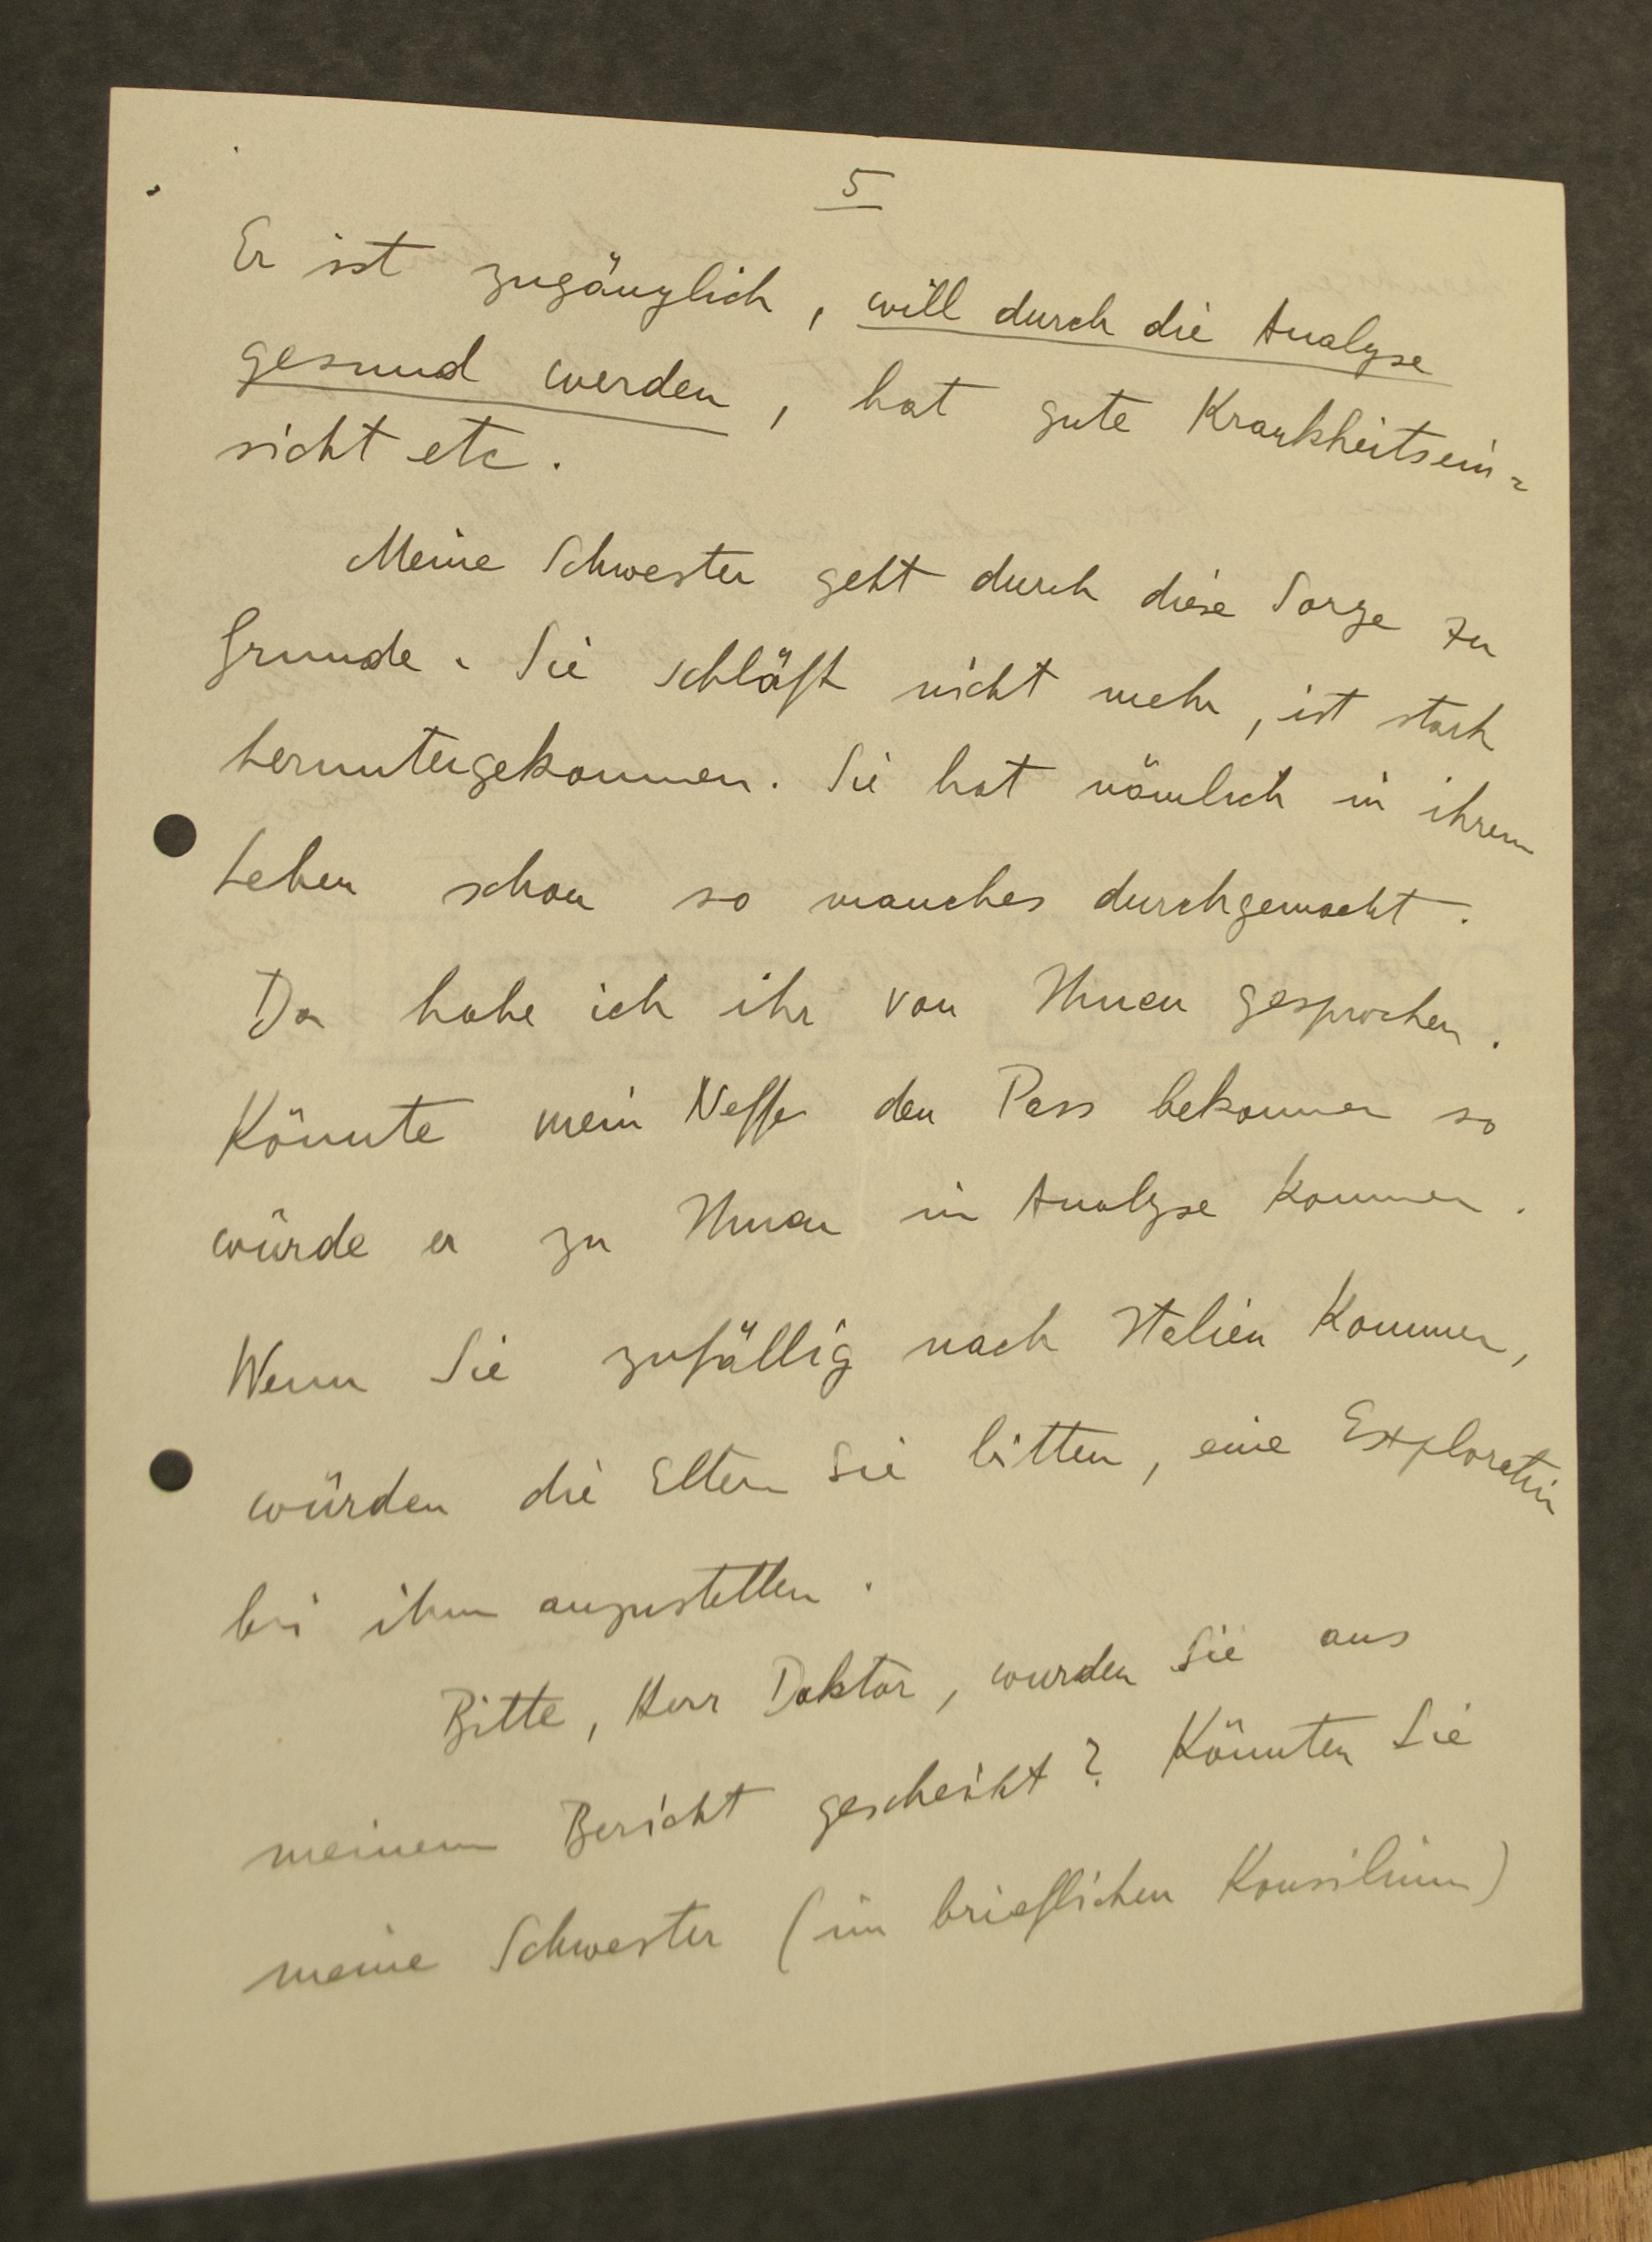 5
Er ist zugänglich, will durch die Analyse
gesund werden, hat gute Krankheitsein=
sicht etc.
Meine Schwester geht durch diese Sorge zu
Grunde. Sie schläft nicht mehr, ist stark
heruntergekommen. Sie hat nämlich in ihrem
Leben schon so manches durchgemacht.
Da habe ich ihr von Ihnen gesprochen.
Könnte mein Neffe den Pass bekommen so
würde er zu Ihnen in Analyse kommen.
Wenn Sie zufällig nach Italien kommen,
würden die Eltern Sie bitten, eine Exploration
bei ihm anzustellen.
Bitte, Herr Doktor, wurden Sie aus
meinem Bericht gescheiht? Könnten Sie
meine Schwester (im brieflichen Konsilium)